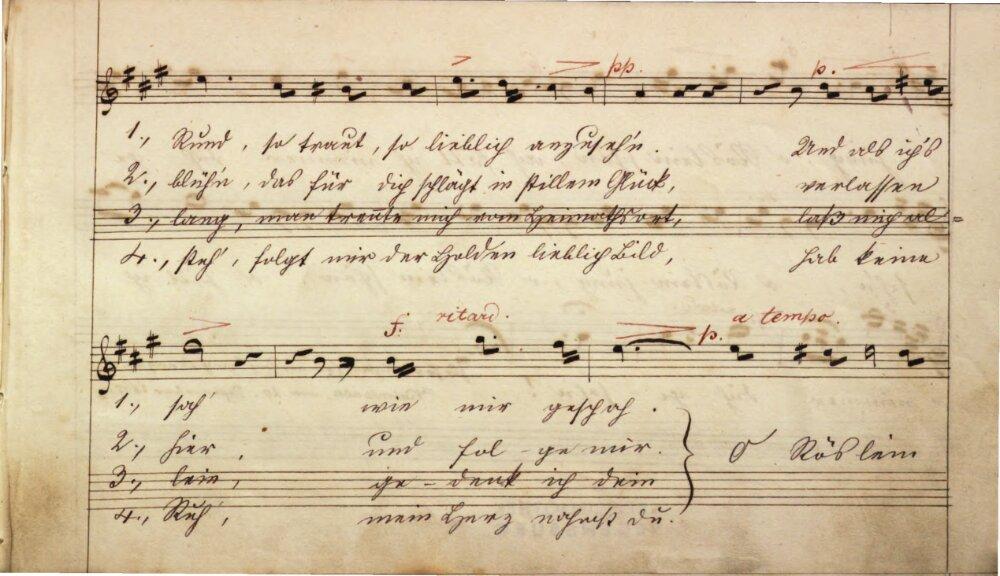 pp. p.
1., Rund, so traut, so lieblich anzuseh'n. Und als ich's
2., blühn, das für dich schlägt in stillem Glück, verlassen
3., lang, man trennte mich vom Heimathsort, laß mich al=
4., steh', folgt mir der Holden lieblich Bild, hab keine
f. ritard. p. a tempo.
1., sah' wie mir geschah.
2., hier, und fol-ge mir. O Röslein
3., lein, ge-denk ich dein
4., Ruh', mein Herz nahmst du.